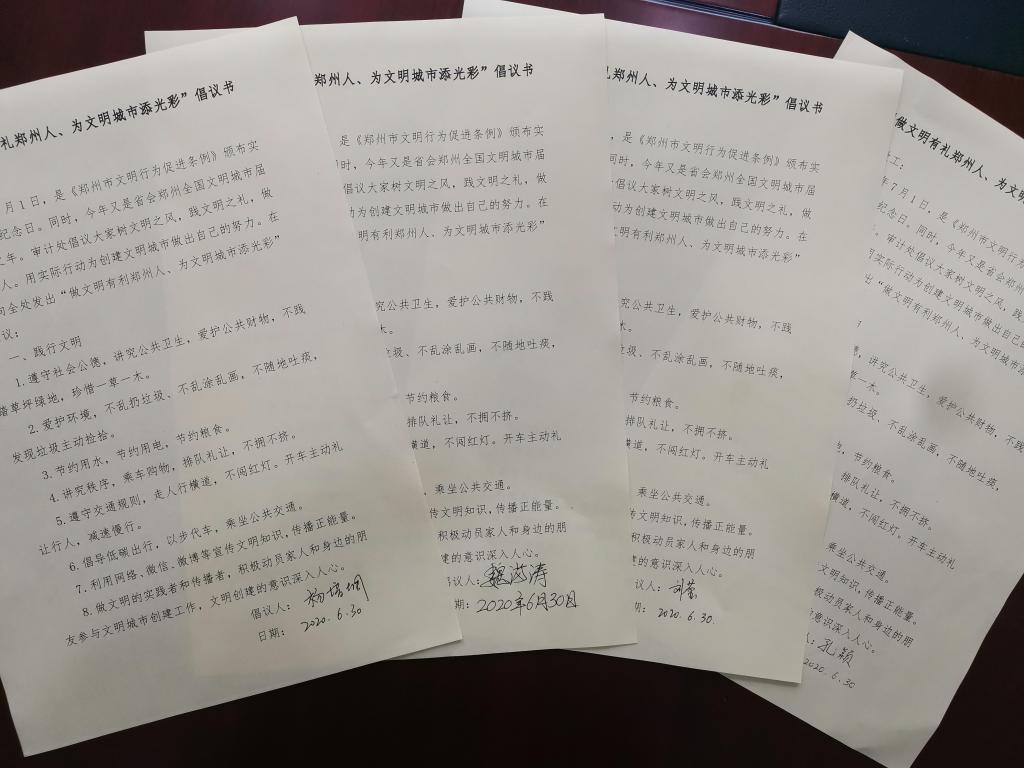 礼郑州人、为文明城市添光彩”倡议书
月1日，是《郑州市文明行为促进条例》颁布实
纪念日。同时，今年又是省会郑州全国文明城市届
之年。审计处倡议大家树文明之风，践文明之礼，做
人。用实际行动为创建文明城市做出自己的努力。在
向全处发出“做文明有利郑州人、为文明城市添光彩”
议：
一、践行文明
1.遵守社会公德，讲究公共卫生，爱护公共财物，不践
踏草坪绿地，珍惜一草一木。
2.爱护环境，不乱扔垃圾、不乱涂乱画，不随地吐痰，
发现垃圾主动捡拾。
3.节约用水，节约用电，节约粮食。
4.讲究秩序，乘车购物，排队礼让，不拥不挤。
5.遵守交通规则，走人行横道，不闯红灯。开车主动礼
让行人，减速慢行。
6.倡导低碳出行，以步代车，乘坐公共交通。
7.利用网络、微信、微博等宣传文明知识，传播正能量。
8.做文明的实践者和传播者，积极动员家人和身边的朋
友参与文明城市创建工作，文明创建的意识深入人心。
倡议人：杨培
日期：2020.6.30
郑州人、为文明城市添光彩”倡议书
是《郑州市文明行为促进条例》颁布实
时，今年又是省会郑州全国文明城市届
倡议大家树文明之风，践文明之礼，做
动为创建文明城市做出自己的努力。在
明有利郑州人、为文明城市添光彩”
究公共卫生，爱护公共财物，不践
木。
垃圾、不乱涂乱画，不随地吐痰，
节约粮食。
排队礼让，不拥不挤。
横道，不闯红灯。开车主动礼
，乘坐公共交通。
传文明知识，传播正能量。
积极动员家人和身边的朋
建的意识深入人心。
议人：涛
期：2020年6月30日
礼郑州人、为文明城市添光彩”倡议书
，是《郑州市文明行为促进条例》颁布实
同时，今年又是省会郑州全国文明城市届
倡议大家树文明之风，践文明之礼，做
动为创建文明城市做出自己的努力。在
文明有利郑州人、为文明城市添光彩”
究公共卫生，爱护公共财物，不践
木。
垃圾、不乱涂乱画，不随地吐痰，
节约粮食。
排队礼让，不拥不挤。
道，不闯红灯。开车主动礼
乘坐公共交通。
文明知识，传播正能量。
积极动员家人和身边的朋
的意识深入人心。
议人：刘
期：2020.6.30.
做文明有礼郑州人、为文明
工：
年7月1日，是《郑州市文明行为
纪念日。同时，今年又是省会郑州
。审计处倡议大家树文明之风，践
用实际行动为创建文明城市做出
出“做文明有利郑州人、为文明城市添
，讲究公共卫生，爱护公共财物，不践
草一木。
扔垃圾、不乱涂乱画，不随地吐痰，
，节约粮食。
，排队礼让，不拥不挤。
横道，不闯红灯。开车主动礼
乘坐公共交通。
文明知识，传播正能量。
极动员家人和身边的朋
意识深入人心。
人：孔颖
2020.6.30